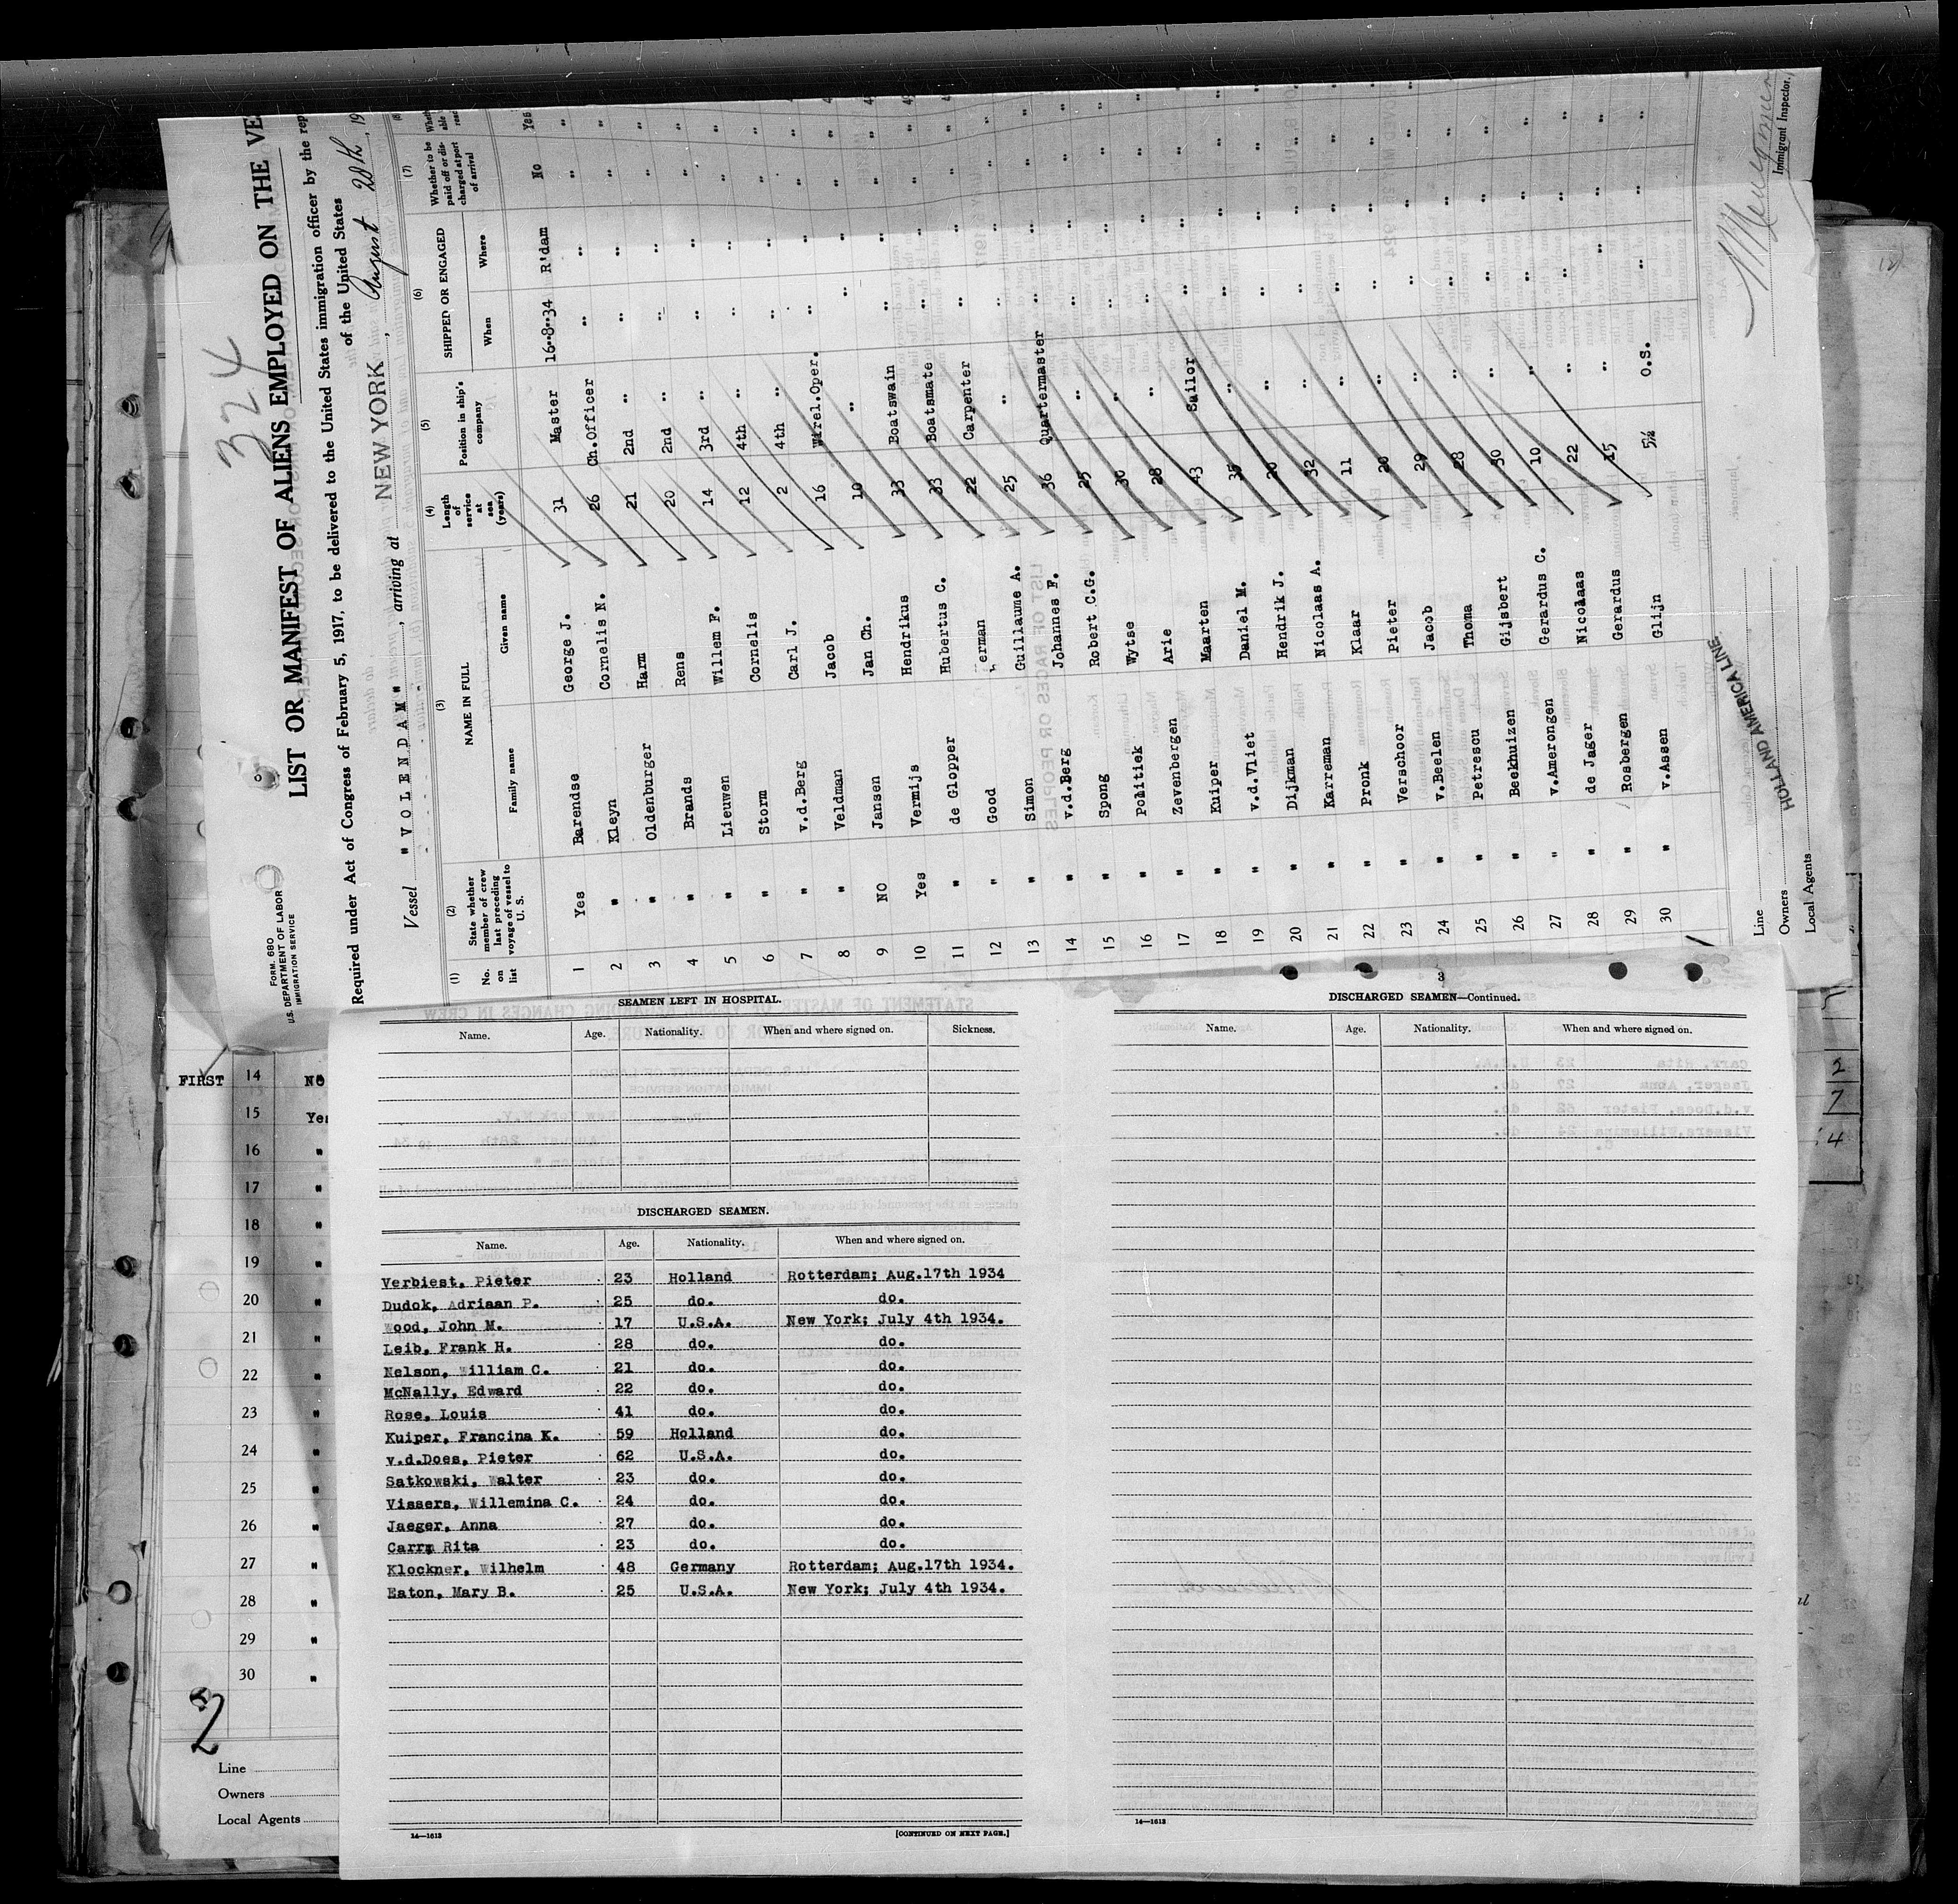 324
FORM 680
U.S. DEPARTMENT OF LABOR
IMMIGRATION SERVICE
LIST OR MANIFEST OF ALIENS EMPLOYED ON THE VE
Required under Act of Congress of February 5, 1917, to be delivered to the United States immigration officer by the rep
of the United States
Vessel "VOLENDAM", arriving at NEW YORK, August 28th, 19
(1) (2) (3) (4) (5) (6) (7) (8)
No. on list
State whether member of crew last preceding voyage of vessel to U. S.
NAME IN FULL
Family name Given name
Length of service at sea (years)
Position in ship's company
SHIPPED OR ENGAGED
When Where
Whether to be paid off or discharged at port of arrival
1 Yes Barendse George J. 31 Master 16-8-34 R'dam No Yes
2 " Kleyn Cornelis N. 26 Ch.Officer " " " "
3 " Oldenburger Harm 21 2nd " " " " "
4 " Brands Rens 20 2nd " " " " "
5 " Lieuwen Willem F. 14 3rd " " " " "
6 " Storm Cornelis 12 4th " " " " "
7 " v.d.Berg Carl J. 2 4th " " " " "
8 " Veldman Jacob 16 Wirel.Oper. " " " "
9 NO Jansen Jan Ch. 10 " " " " "
10 Yes Vermijs Hendrikus 33 Boatswain " " " "
11 " de Glopper Hubertus C. 33 Boatsmate " " " "
12 " Good erman 22 Carpenter " " " "
13 " Simon Guillaume A. 25 " " " " "
14 " v.d.Berg Johannes F. 36 Quartermaster " " " "
15 " Spong Robert C.G. 25 " " " " "
16 " Politiek Wytse 30 " " " " "
17 " Zevenbergen Arie 28 " " " " "
18 " Kuiper Maarten 43 Sailor " " " "
19 " v.d.Vliet Daniel M. 35 " " " " "
20 " Dijkman Hendrik J. 20 " " " " "
21 " Karreman Nicolaas A. 32 " " " " "
22 " Pronk Klaar 11 " " " " "
23 " Verschoor Pieter 20 " " " " "
24 " v.Beelen Jacob 29 " " " " "
25 " Petrescu Thoma 28 " " " " "
26 " Beekhuizen Gijsbert 30 " " " " "
27 " v.Amerongen Gerardus C. 10 " " " " "
28 " de Jager Nicolaas 22 " " " " "
29 " Rosbergen Gerardus 15 " " " " "
30 " v.Assen Glijn 5½ O.S. " " " "
Line
Owners HOLLAND AMERICA LINE
Local Agents
Immigrant Inspector.
SEAMEN LEFT IN HOSPITAL.
Name. Age. Nationality. When and where signed on. Sickness.
DISCHARGED SEAMEN.
Name. Age. Nationality. When and where signed on.
Verbiest, Pieter 23 Holland Rotterdam; Aug.17th 1934
Dudok, Adriaan P. 25 do. do.
Wood, John M. 17 U.S.A. New York; July 4th 1934.
Leib, Frank H. 28 do. do.
Nelson, William C. 21 do. do.
McNally, Edward 22 do. do.
Rose, Louis 41 do. do.
Kuiper, Francina K. 59 Holland do.
v.d.Does, Pieter 62 U.S.A. do.
Satkowski, Walter 23 do. do.
Vissers, Willemina C. 24 do. do.
Jaeger, Anna 27 do. do.
Carrm Rita 23 do. do.
Klockner, Wilhelm 48 Germany Rotterdam; Aug.17th 1934.
Eaton, Mary B. 25 U.S.A. New York; July 4th 1934.
14—1613
[CONTINUED ON NEXT PAGE.]
3
DISCHARGED SEAMEN—Continued.
Name. Age. Nationality. When and where signed on.
14—1613
FIRST 14 NO
15 Yes
16 "
17 "
18 "
19 "
20 "
21 "
22 "
23 "
24 "
25 "
26 "
27 "
28 "
29 "
30 "
2
Line
Owners
Local Agents
2
7
4